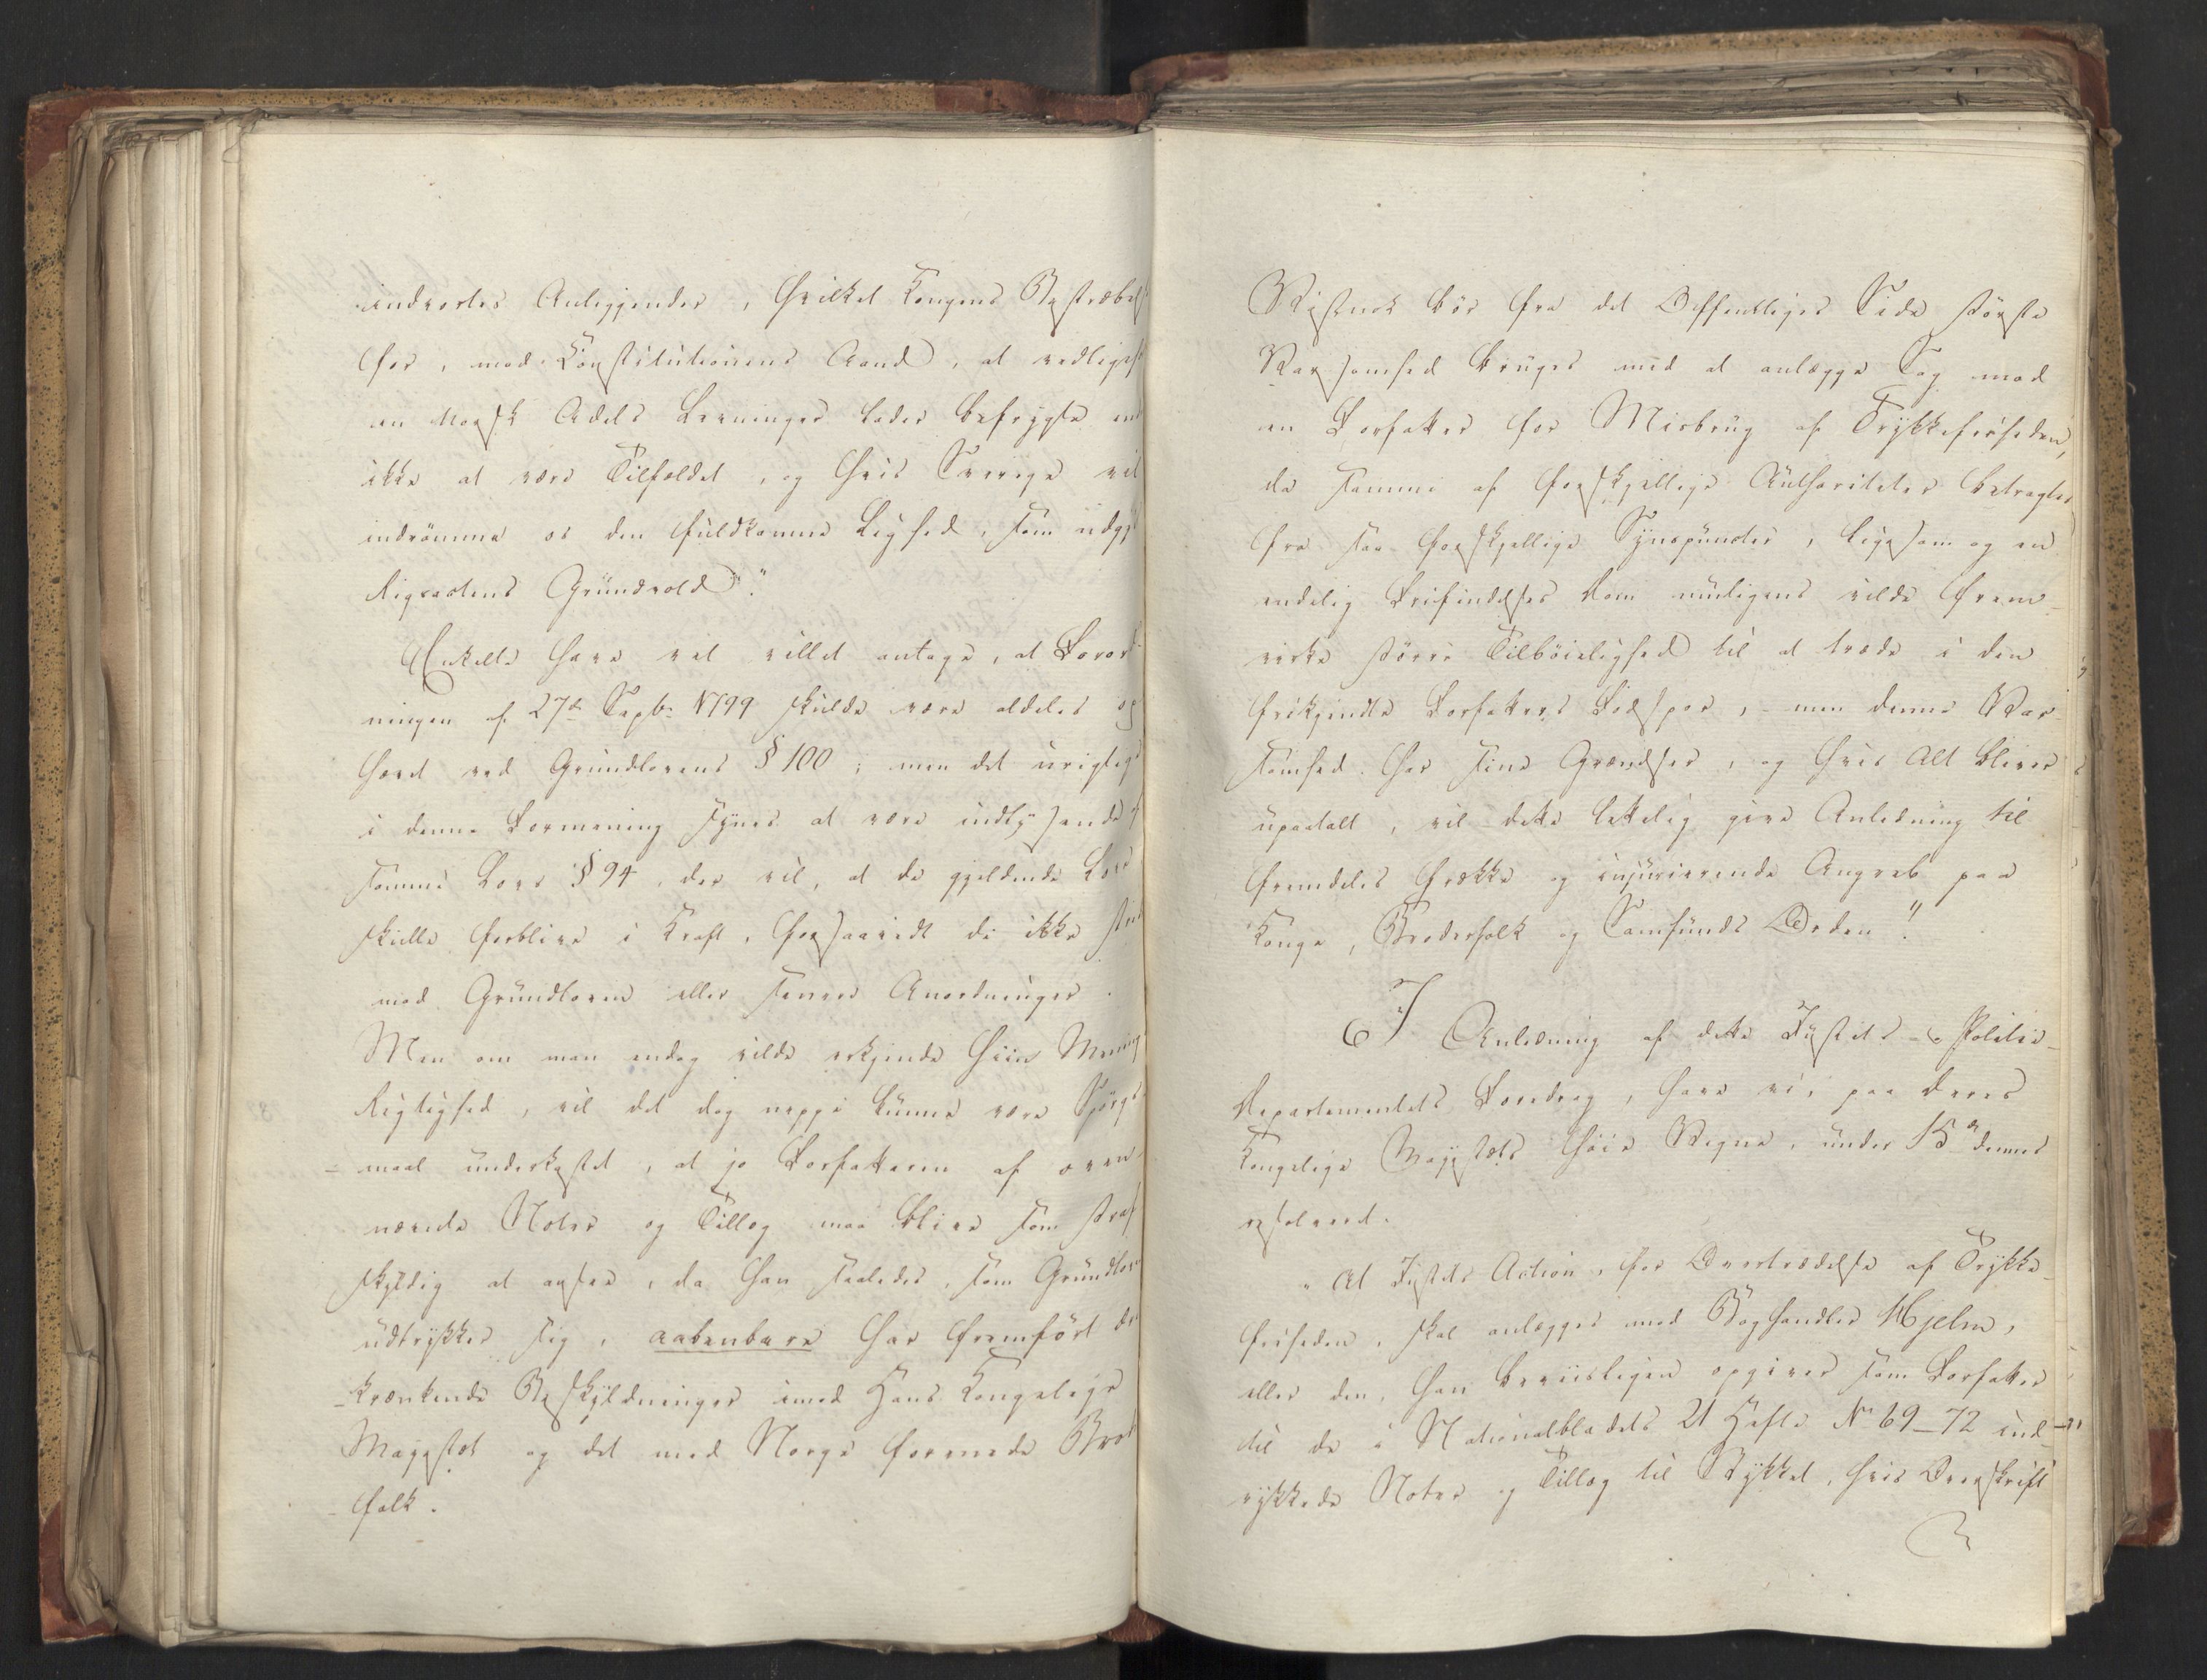 indvortes Anliggender, hvilket Kongens Bestræbels
for, mod Konstitutionens Aand, at vedligeh
en norsk Adels Levninger lader befrygte en
ikke at være Tilfældet, og hvis Sverige vil
indrømme os den fuldkomne Lighed, som udgj
Rigsactens Grundvold".
Enkelte have vel villet antage, at Forord
ningen af 27de Septbr 1799 skulde være aldeles op
hævet ved Grundlovens § 100; men det urigtige
i denne Formening synes at være indlysende af
samme Lovs § 94, der vil, at de gjeldende Love
skulle forblive i Kraft, forsaavidt de ikke stri
mod Grundloven eller senere Anordninger.
Men om man endog vilde erkjende hiin Mening
Rigtighed, vil det dog neppe kunne være Spørgs
maal underkastet, at jo Forfatteren af oven
nævnte Noter og Tillæg maa blive som straf
skyldig at ansee, da han saaledes, som Grundlov
udtrykker sig, aabenbare har fremført de
krænkende Beskyldninger imod Hans Kongelige
Majestæt og det med Norge forenede Brod
folk.
Vistnok bør fra det Offentliges Side største
Varsomhed bruges med at anlægge Sag mod
en Forfatter for Misbrug af Trykkefriheden,
da samme af forskjellige Authoriteter betragtes
fra saa forskjellige Synspuncter, ligesom og en
endelig Frifindelses Dom muligens vilde frem-
virke større Tilbøielighed til at træde i den
frikjendte Forfatters Fodspor, men denne Var-
somhed har sine Grændser, og hvis Alt bliver
upaatalt, vil dette lettelig give Anledning til
fremdeles frække og injurierende Angreb paa
Konge, Broderfolk og Samfunds Orden".
I Anledning af dette Justits- og Politie-
Departementets Foredrag, have vi, paa Deres
Kongelige Majestæts høie Vegne, under 15de dennes
resolveret.
"At Justits Action, for Overtrædelse af Trykke-
friheden, skal anlægges mod Boghandler Hjelm,
eller den, han beviisligen opgiver som Forfatter
til de i Nationalbladets 21 Hefte No 69-72 ind-
rykkede Noter og Tillæg til Stykket, hvis Overskrift